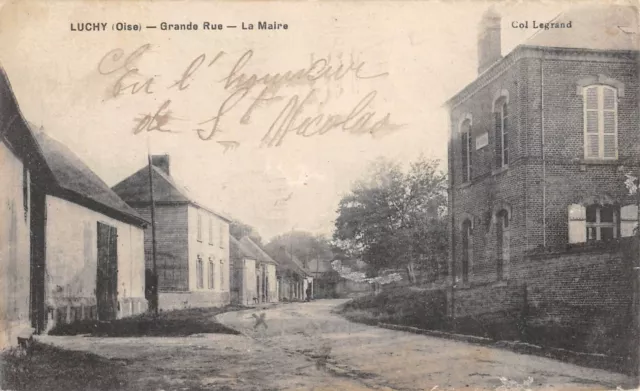 LUCHY (Oise) — Grande Rue — La Maire
Col Legrand
En l'honneur
de St Nicolas